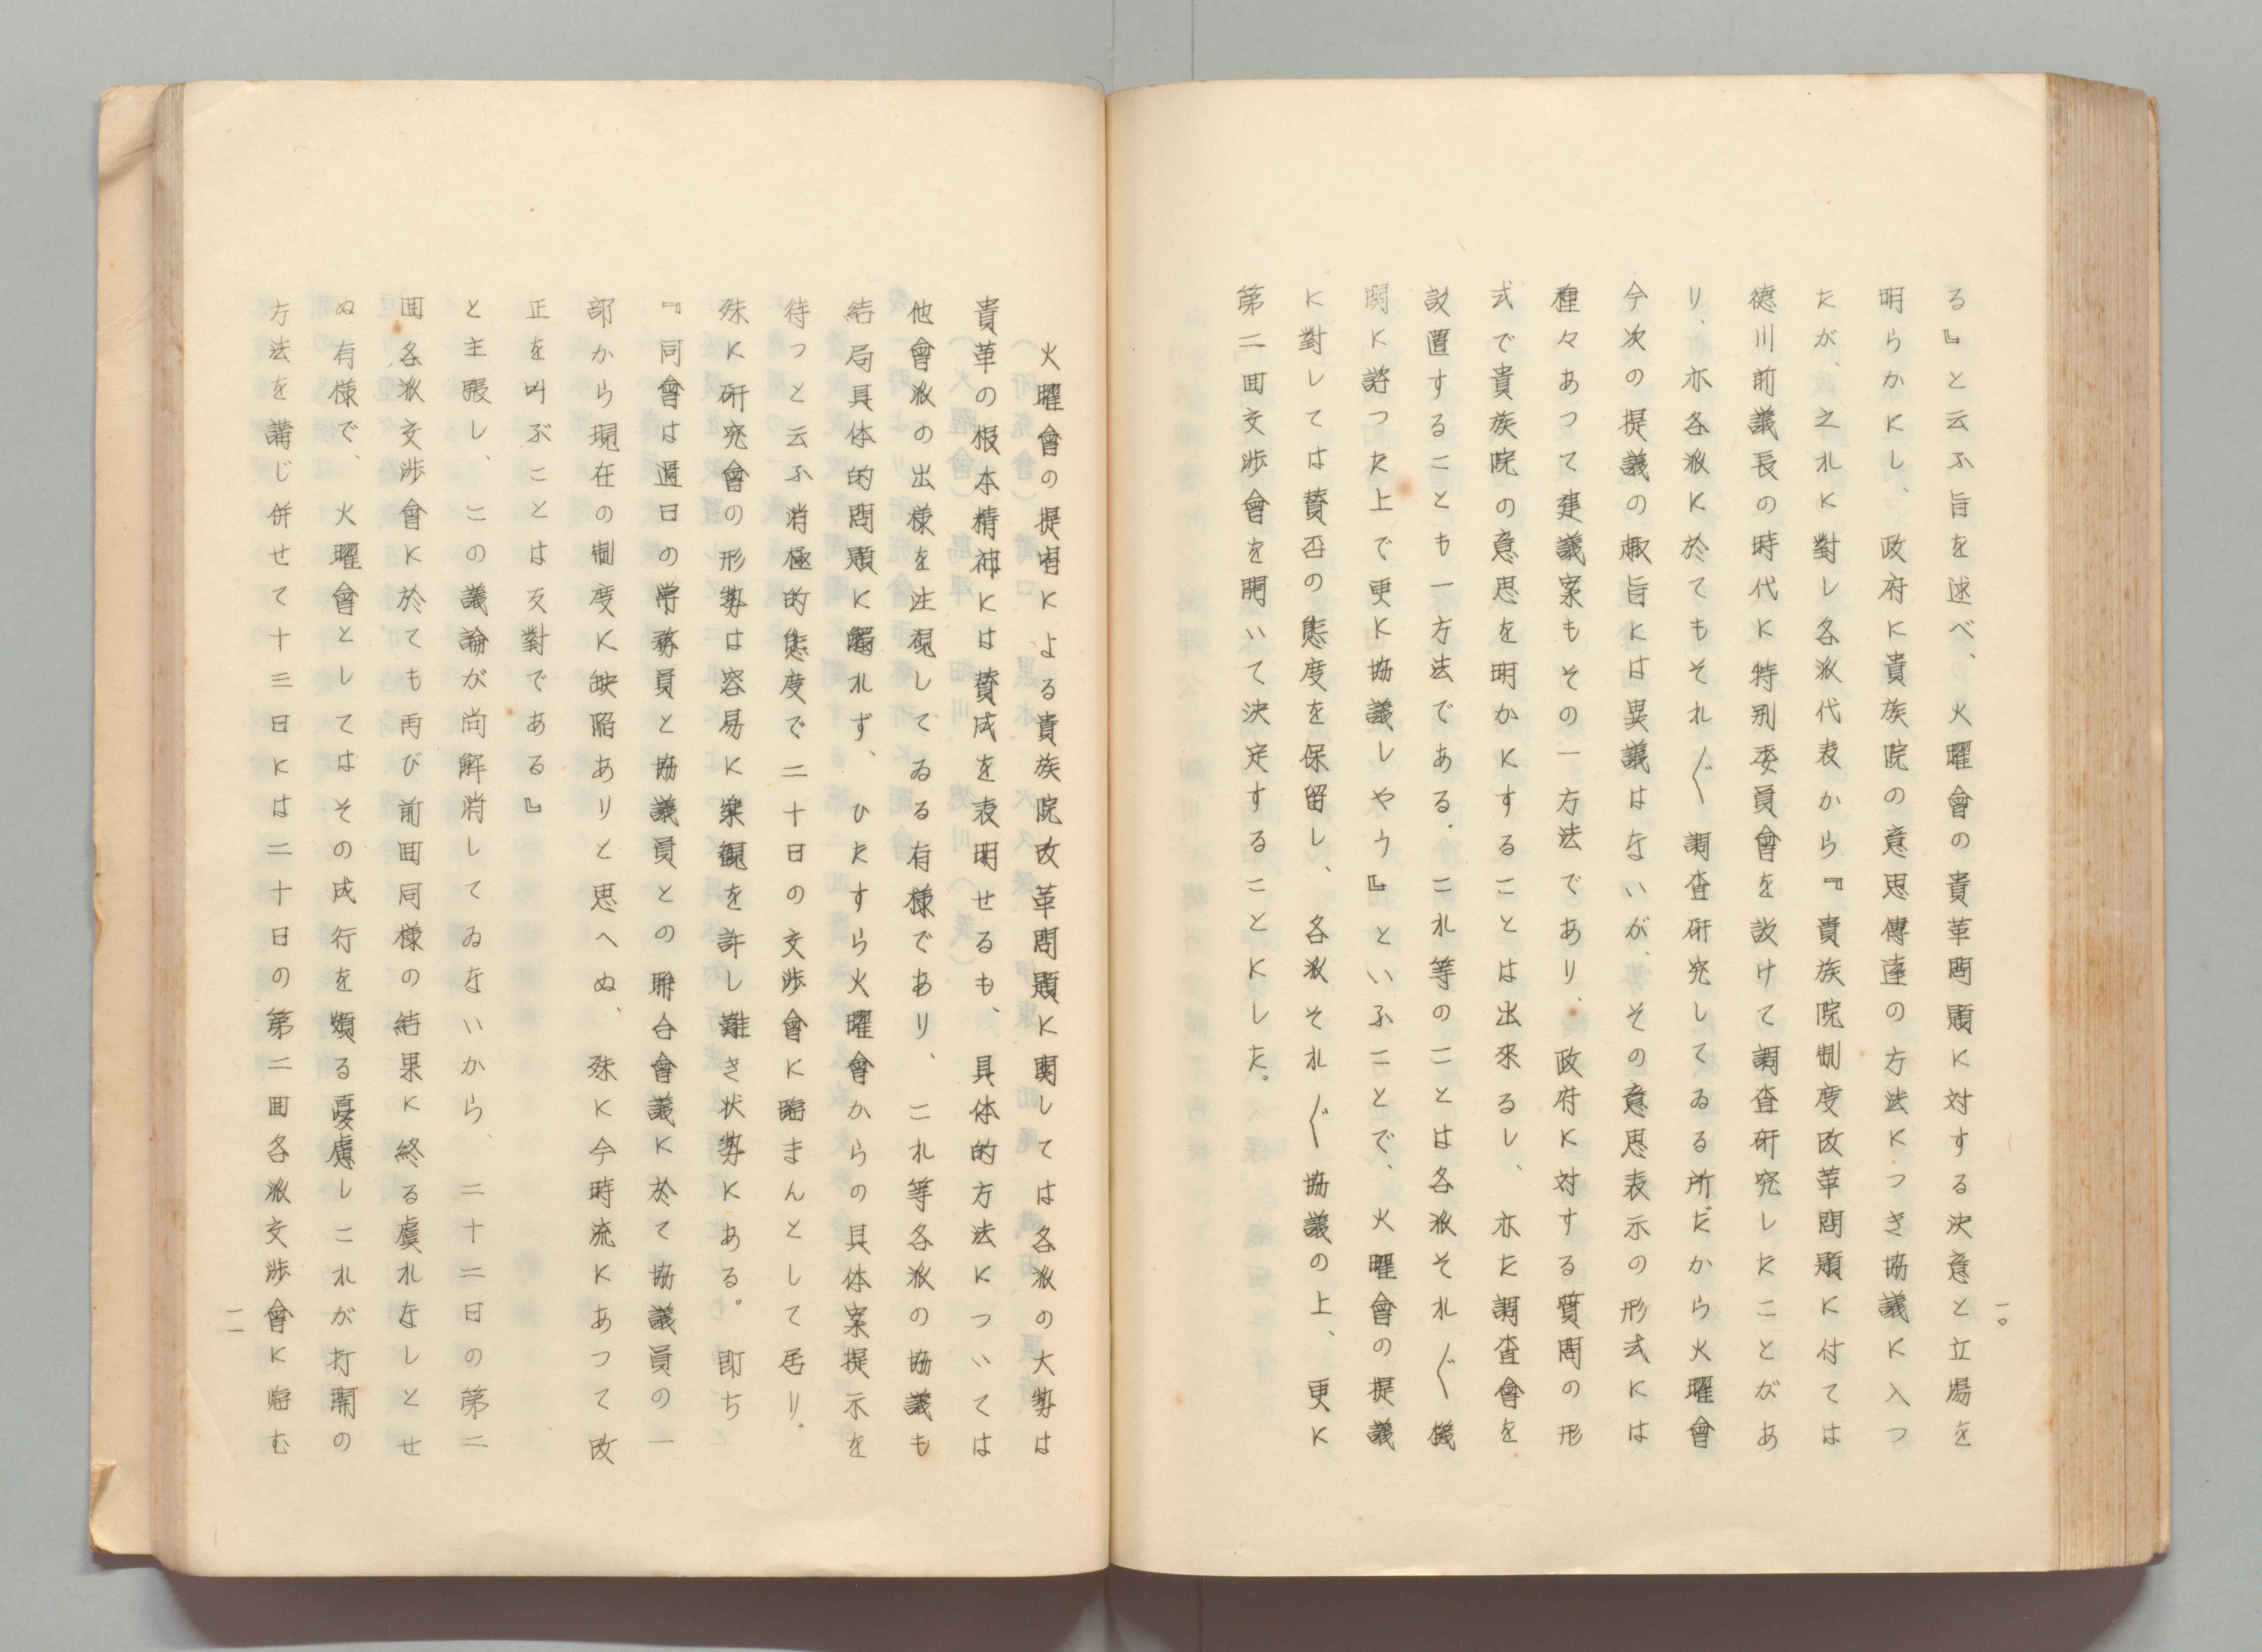 一〇
る』と云ふ旨を述べ、火曜會の貴革問題に対する決意と立場を
明らかにし、政府に貴族院の意思傳達の方法につき協議に入つ
たが、之れに對し各派代表から『貴族院制度改革問題に付ては
德川前議長の時代に特別委員會を設けて調査研究したことがあ
り、亦各派に於てもそれ〲調査研究してゐる所だから火曜會
今次の提議の趣旨には異議はないが、その意思表示の形式には
種々あつて建議案もその一方法であり、政府に対する質問の形
式で貴族院の意思を明かにすることは出來るし、亦た調査會を
設置することも一方法である.これ等のことは各派それ〲機
関に諮つた上で更に協議しやう』といふことで、火曜會の提議
に對しては賛否の態度を保留し、各派それ〲協議の上、更に
第二囬交渉會を開いて決定することにした。
火曜會の提唱による貴族院改革問題に関しては各派の大勢は
貴革の根本精神には賛成を表明せるも、具体的方法については
他會派の出様を注視してゐる有様であり、これ等各派の協議も
結局具体的問題に觸れず、ひたすら火曜會からの具体案提示を
待つと云ふ消極的態度で二十日の交渉會に臨まんとして居り.
殊に研究會の形勢は容易に楽観を許し難き状勢にある。即ち
『同會は過日の常務員と協議員との聯合會議に於て協議員の一
部から現在の制度に缺陥ありと思へぬ、殊に今時流にあつて改
正を叫ぶことは反對である』
と主張し、この議論が尚解消してゐないから、二十二日の第二
囬各派交渉會に於ても再び前囬同様の結果に終る虞れなしとせ
ぬ有様で、火曜會としてはその成行を頗る憂慮しこれが打開の
方法を講じ併せて十三日には二十日の第二囬各派交渉會に臨む
一一